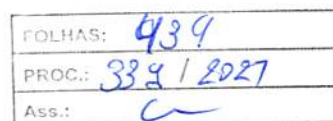 FOLHAS: 439
PROC.: 339 / 2021
Ass.: